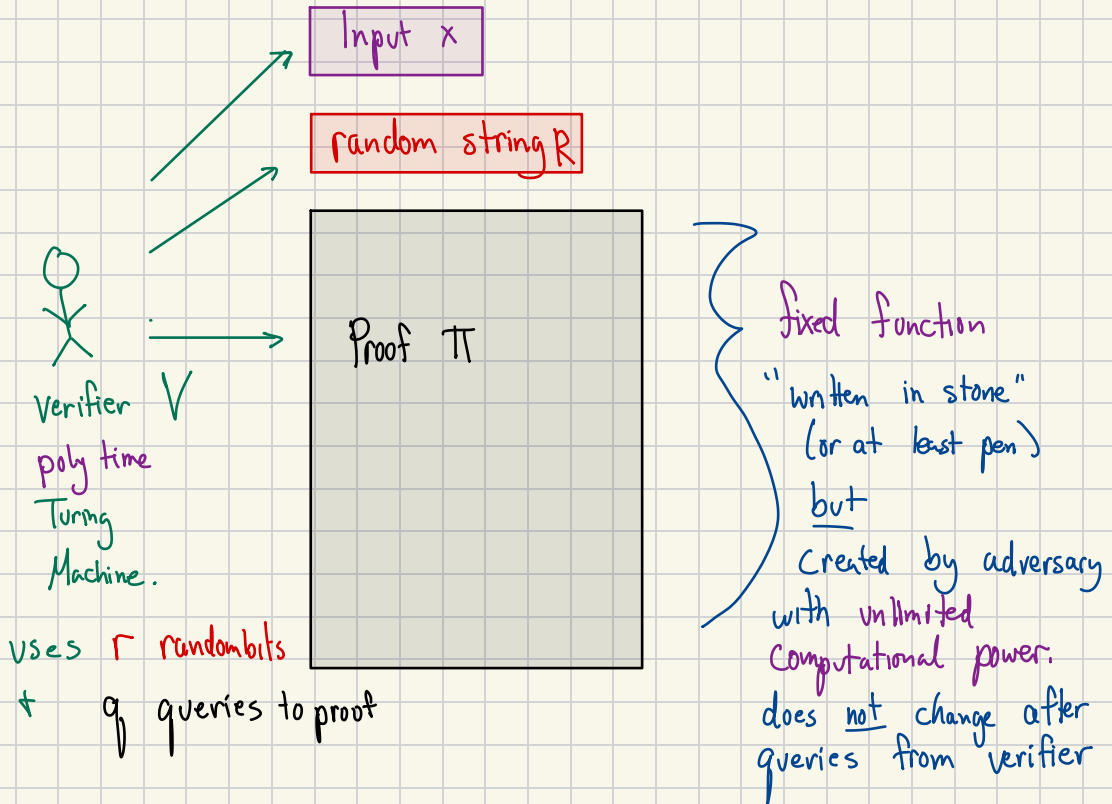 Input x
random string R
Proof π
Verifier V
poly time
Turing
Machine.
uses r randombits
+ q queries to proof
fixed function
"written in stone"
(or at least pen)
but
created by adversary
with unlimited
computational power.
does not change after
queries from verifier